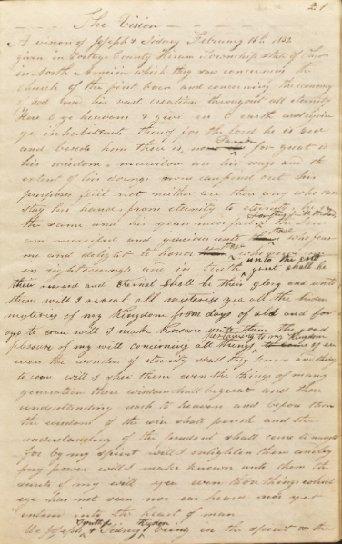 21
The Vision
A vision of Joseph & Sidney February 16th 1832
given in Portage County Hiram Township State of Ohio
in North America which they saw concerning the
church of the first born and concerning the economy
of God and his vast creation throughout all eternity
Hear O ye heavens & give ear O earth and rejoice
ye inhabitants thereof for the Lord he is God
and beside him there is for great is
his wisdom marvelous are his ways and the
extent of his doings none can find out his
purposes fail not neither are there any who can
stay his hand from eternity to eternity he is
the same and his years never
am merciful and gracious unto who fear
me and delight to honor
in righteousness and in truth unto the end
great shall be
their reward and eternal shall be their glory and unto
them will I reveal all mysteries yea all the hidden
mysteries of my Kingdom from days of old and for
ages to come will I make known unto them the good
pleasure of my will concerning all things
pertaining to my Kingdom
even the wonders of eternity shall they know and things
to come will I shew them even the things of many
generations their wisdom shall be great and their
understanding reach to heaven and before them
the wisdom of the wise shall perish and the
understanding of the prudent shall come to naught
for by my spirit will I enlighten them and by
my power will I make known unto them the
secrets of my will yea even those things which
eye has not seen nor ear heard nor yet
entered into the heart of man
We Joseph & Sidney being in the spirit on the